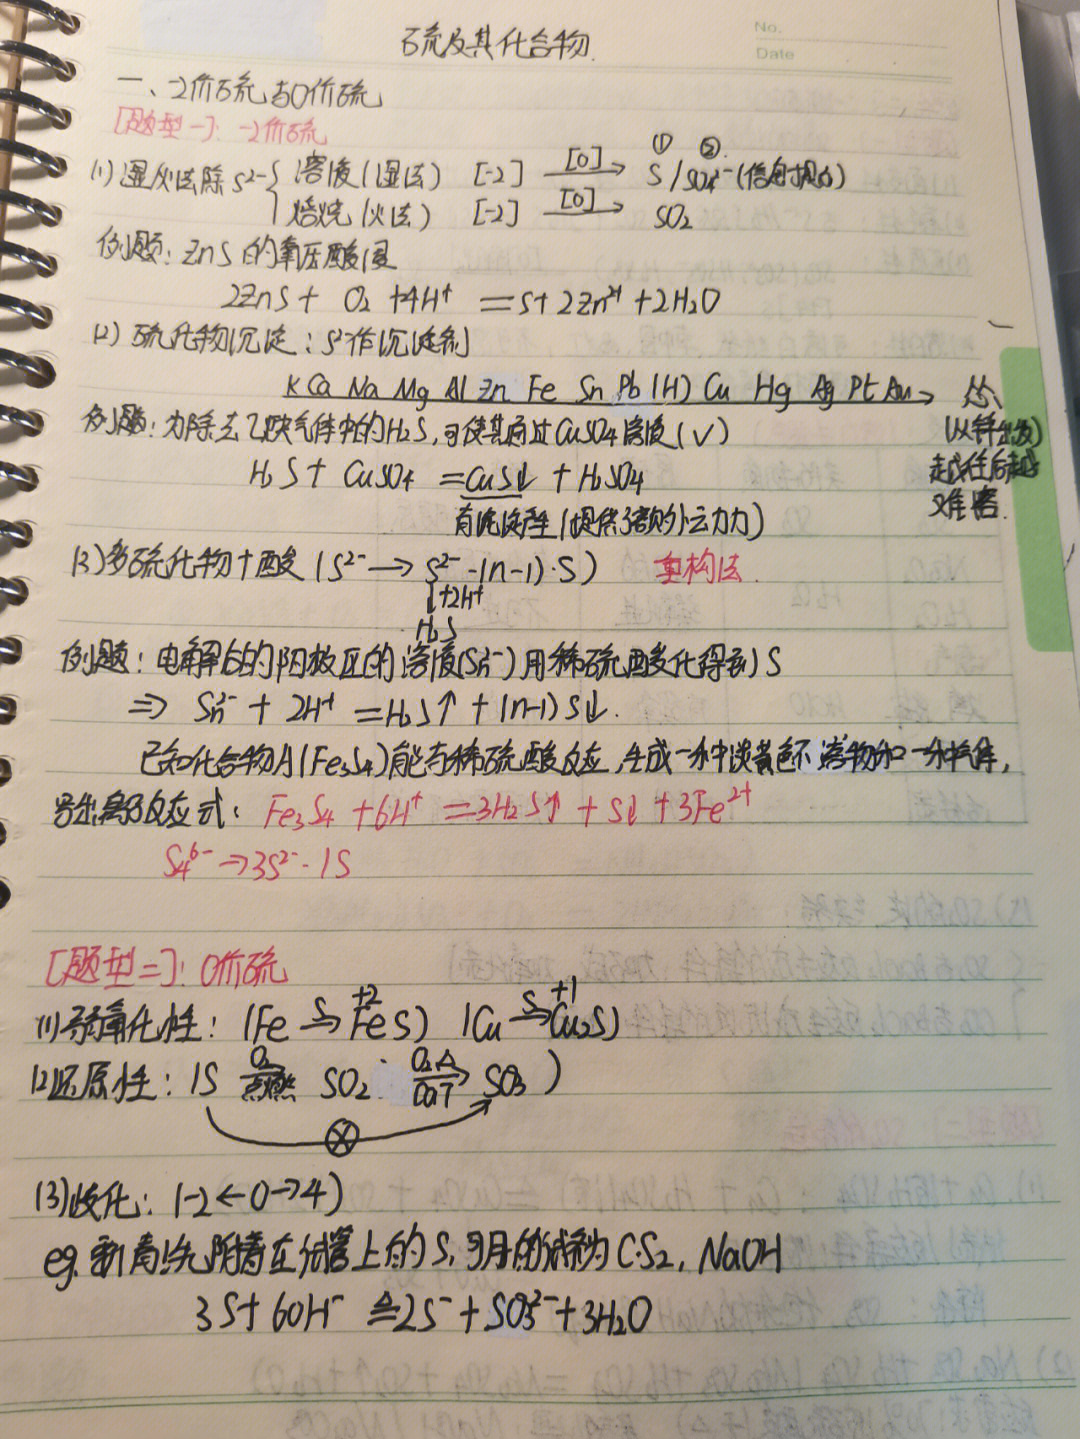 硫及其化合物.
No.
Date
一、-2价硫与0价硫
[题型一]: -2价硫
(1)湿火法除S²⁻{ 溶浸(湿法) [-2] —[O]→ ①S/②SO₄²⁻(信息提点)
焙烧(火法) [-2] —[O]→ SO₂
例题: ZnS的氧压酸浸
2ZnS + O₂ +4H⁺ = S+ 2Zn²⁺ +2H₂O
(2) 硫化物沉淀: S²⁻作沉淀剂
K Ca Na Mg Al Zn Fe Sn Pb (H) Cu Hg Ag Pt Au →
(从锌出发)
越往后越
难溶.
例题: 为除去乙炔气体中的H₂S,可使其通过CuSO₄溶液(√)
H₂S + CuSO₄ = CuS↓ + H₂SO₄
有沉淀产生(提供了额外动力)
(3)多硫化物+酸 (S²⁻ → S²⁻·(n-1)·S) 重构法.
↓+2H⁺
H₂S
例题: 电解后的阳极区的溶液(Sn²⁻)用稀硫酸酸化得到S
⇒ Sn²⁻ + 2H⁺ = H₂S↑ + (n-1)S↓.
已知化合物A(Fe₃S₄)能与稀硫酸反应,生成一种淡黄色不溶物和一种气体,
写出离子反应式: Fe₃S₄ +6H⁺ =3H₂S↑ + S↓ +3Fe²⁺
S₄⁶⁻ →3S²⁻·1S
[题型二]: 0价硫
(1)弱氧化性: (Fe —S→ +2 FeS) (Cu —S→ +1 Cu₂S)
(2)还原性: (S —O₂ 点燃— SO₂ —O₂ △ Cat→ SO₃)
⊗
(3)歧化: (-2←0→4)
eg. 新寿.先附着在试管上的S,可用的试剂为CS₂, NaOH
3S+ 6OH⁻ =△= 2S⁻ + SO₃²⁻ +3H₂O